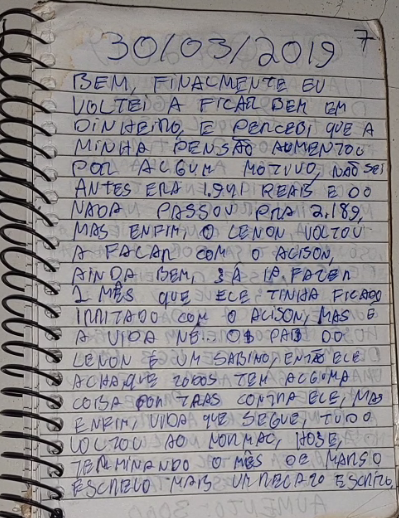 7
30/03/2019
BEM, FINALMENTE EU
VOLTEI A FICAR BEM EM
DINHEIRO, E PERCEBI, QUE A
MINHA PENSÃO AUMENTOU
POR ALGUM MOTIVO, NÃO SEI
ANTES ERA 1.941 REAIS E DO
NADA PASSOU PRA 2.189,
MAS ENFIM, O LENON VOLTOU
A FALAR COM O ALISON,
AINDA BEM, JÁ IA FAZER
1 MÊS QUE ELE TINHA FICADO
IRRITADO COM O ALISON, MAS É
A VIDA NÉ. O PAI DO
LENON É UM ENTÃO ELE
ACHA QUE TODOS TEM ALGUMA
COISA POR TRÁS CONTRA ELE, MAS
ENFIM, VIDA QUE SEGUE, TUDO
VOLTOU AO NORMAL, HOJE,
TERMINANDO O MÊS DE MARÇO
ESCREVO MAIS UM RECADO ESCRITO,